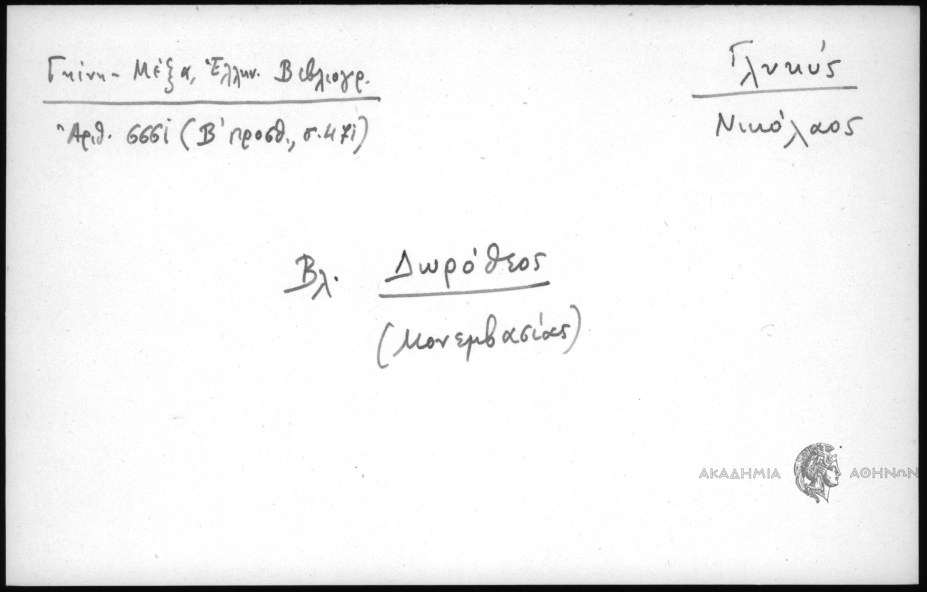 Γκίνη - Μέξα, Ἑλλην. Βιβλιογρ.
Ἀριθ. 6661 (Β' προσθ., σ. 471)
Γλυκύς
Νικόλαος
Βλ. Δωρόθεος
(Μονεμβασίας)
ΑΚΑΔΗΜΙΑ ΑΘΗΝΩΝ